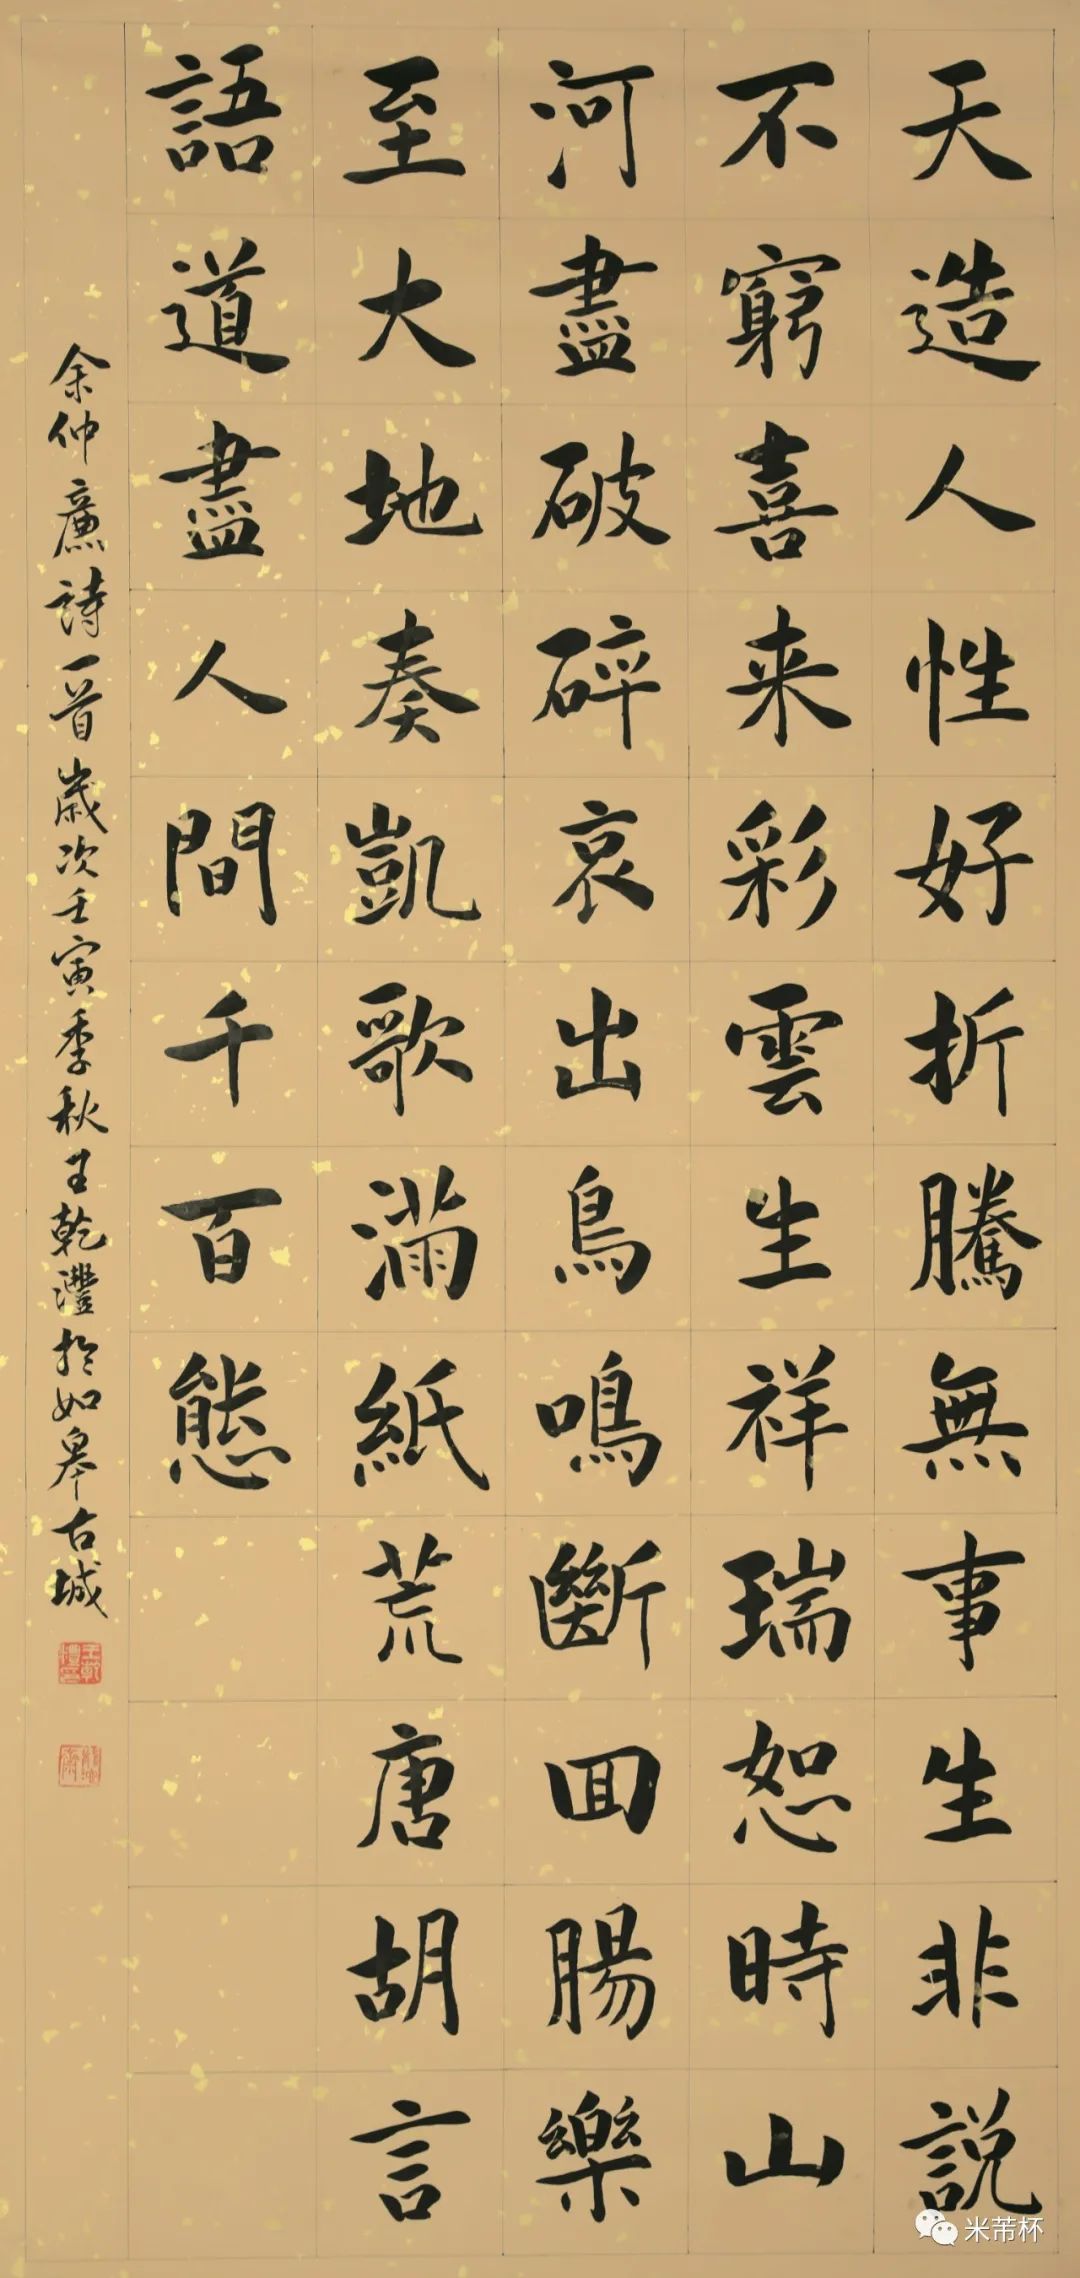 天造人性好折騰無事生非說
不窮喜来彩雲生祥瑞恕時山
河盡破碎哀出鳥鳴斷回腸樂
至大地奏凱歌滿紙荒唐胡言
語道盡人間千百態
余仲廉詩一首歲次壬寅季秋王乾灃於如皋古城
米芾杯